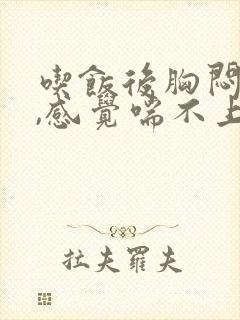 喫飯後胸悶
,感覺喘不上
拉夫羅夫